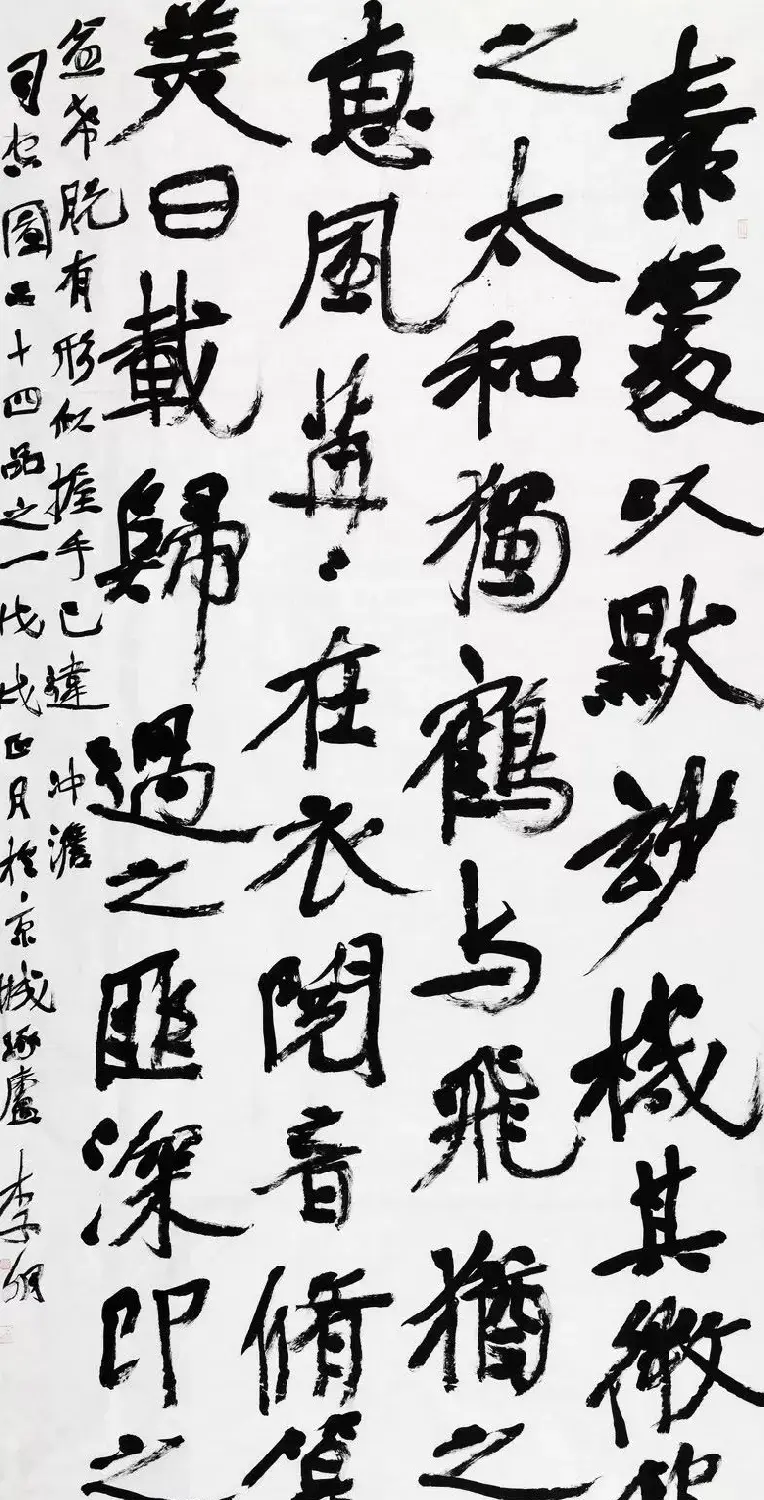 素處以默玅機其微飲
之太和獨鶴与飛猶之
惠風苒〻在衣閱音脩篁
美曰載歸遇之匪深即之
愈希脫有形似握手已違 冲澹
司空圖二十四品之一戊戌正月於京城琢廬 李